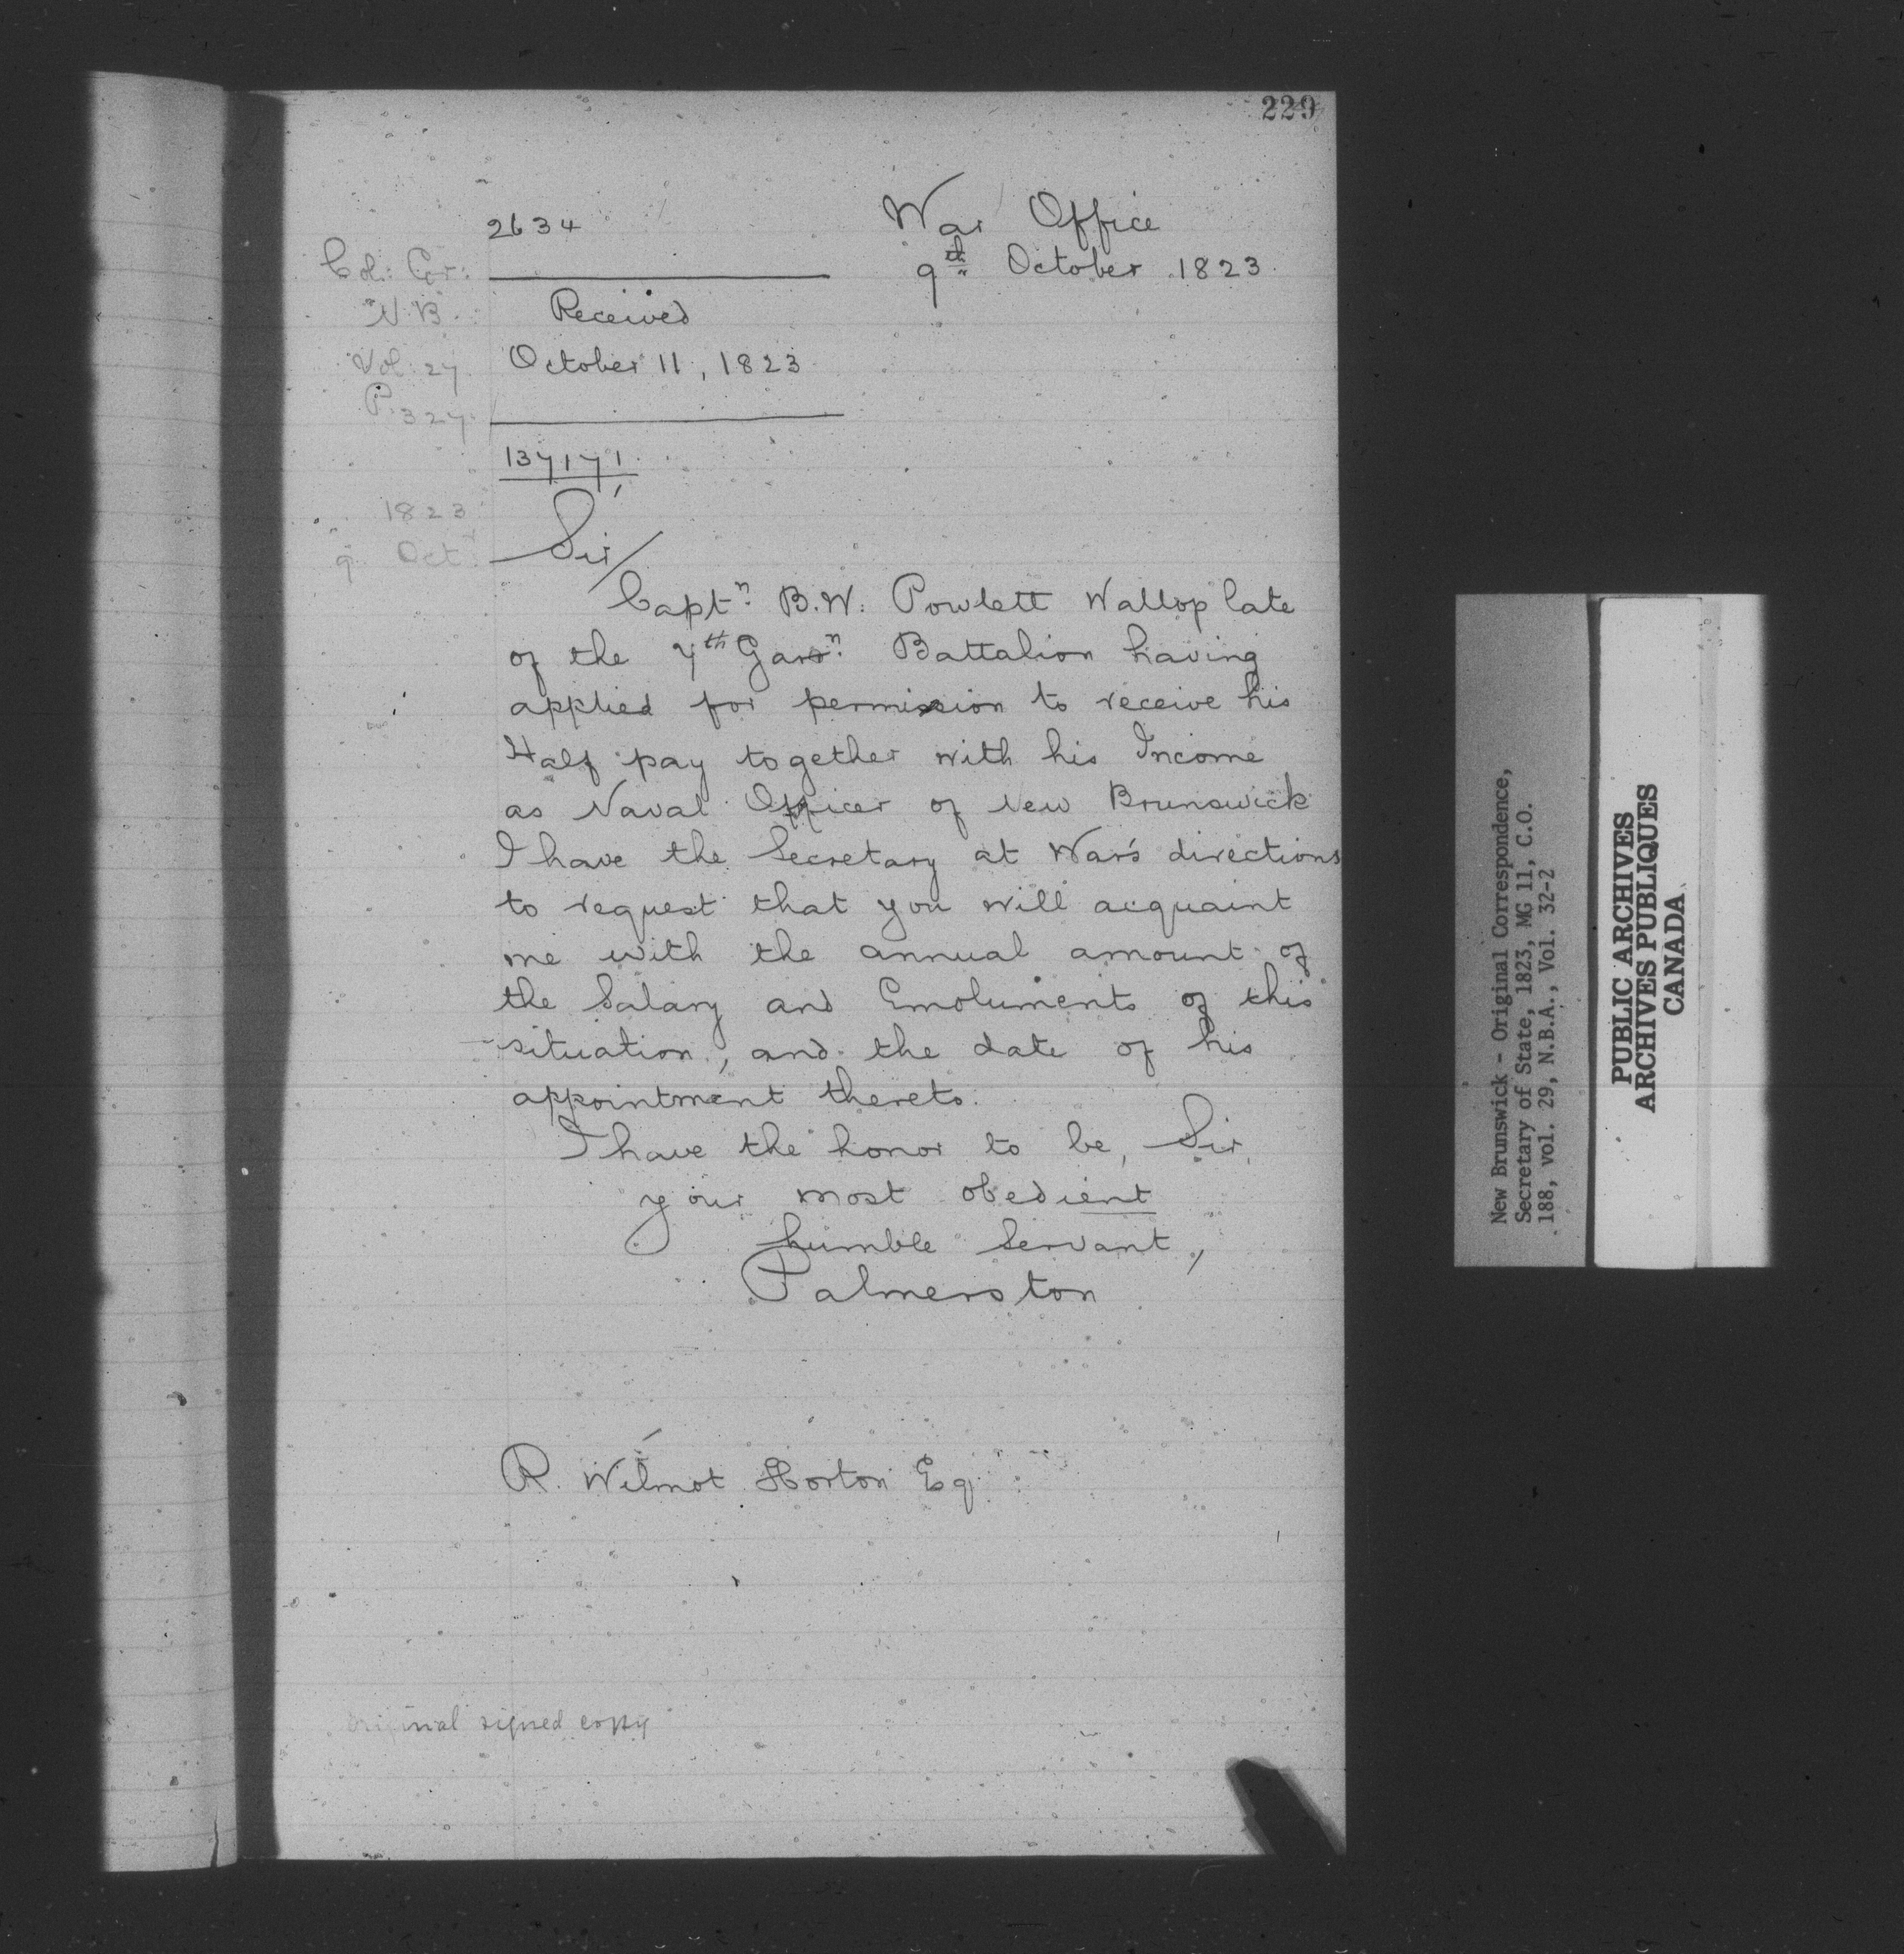 229
2634
War Office
9th October 1823.
Col: Cor:
N.B.
Vol. 27
P. 327.
Received
October 11, 1823
137171
1823
9 Octr
Sir/
Captn. B.W. Powlett Wallop late
of the 7th Garrn. Battalion having
applied for permission to receive his
Half pay together with his Income
as Naval Officer of New Brunswick
I have the Secretary at War's directions
to request that you will acquaint
me with the annual amount of
the Salary and Emoluments of this
situation, and the date of his
appointment thereto.
I have the honor to be, Sir,
your most obedient
humble Servant,
Palmerston
R. Wilmot Horton Esq
original signed copy
New Brunswick - Original Correspondence,
Secretary of State, 1823, MG 11, C.O.
188, vol. 29, N.B.A., Vol. 32-2
PUBLIC ARCHIVES
ARCHIVES PUBLIQUES
CANADA